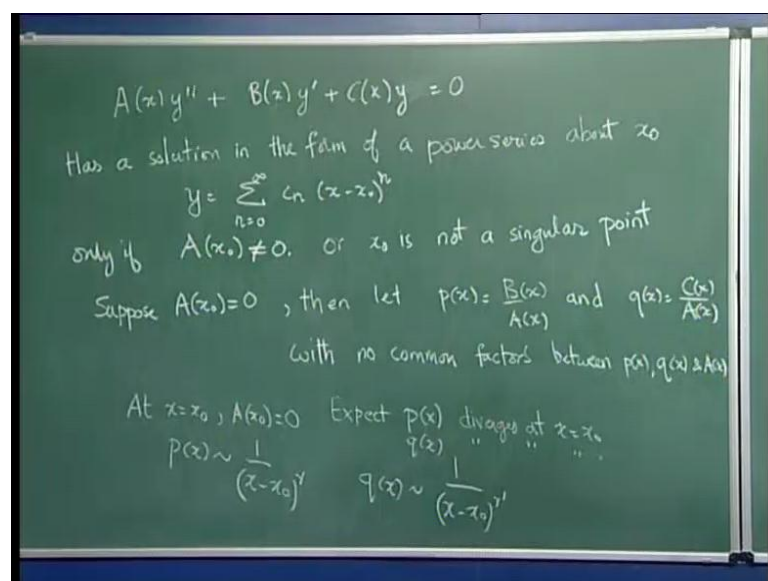 A(x)y'' + B(x)y' + C(x)y = 0
Has a solution in the form of a power series about x₀
y = ∑_{n=0}^{∞} cₙ (x-x₀)ⁿ
only if A(x₀) ≠ 0. or x₀ is not a singular point
Suppose A(x₀)=0, then let p(x) = B(x)/A(x) and q(x) = C(x)/A(x)
with no common factors between p(x), q(x) & A(x)
At x=x₀, A(x₀)=0 Expect p(x) diverges at x=x₀
q(x) " " " .
p(x) ~ 1/(x-x₀)^r q(x) ~ 1/(x-x₀)^r'